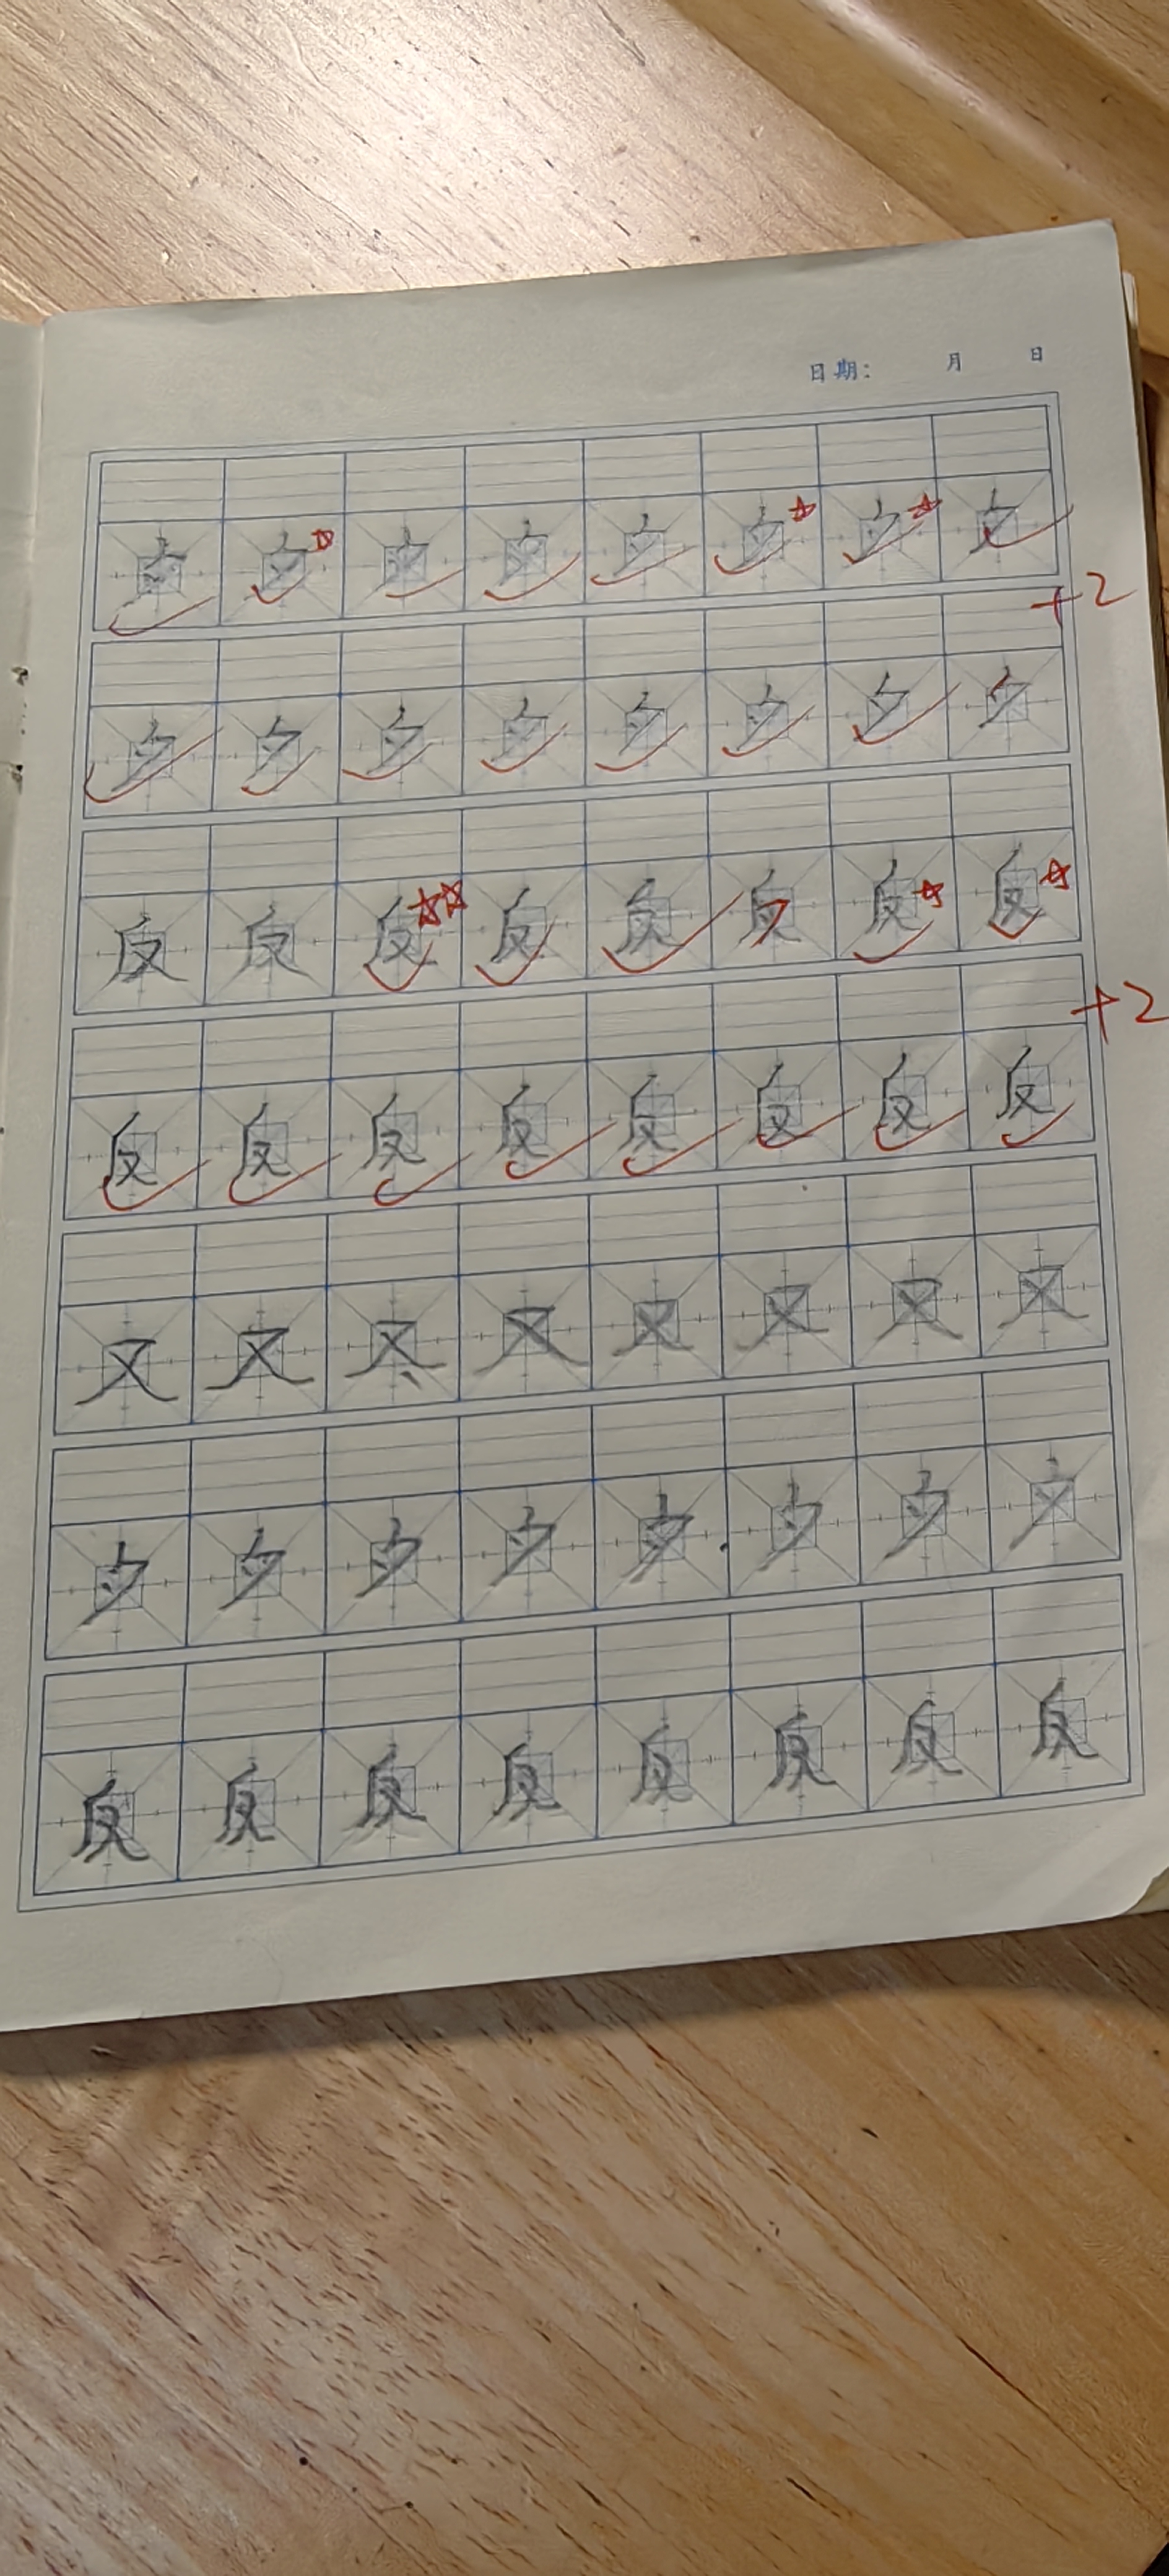 日期： 月 日
夕 夕 夕 夕 夕 夕 夕 夕
+2
夕 夕 夕 夕 夕 夕 夕 夕
反 反 反 反 反 反 反 反
+2
反 反 反 反 反 反 反 反
又 又 又 又 又 又 又 又
夕 夕 夕 夕 夕 夕 夕 夕
反 反 反 反 反 反 反 反